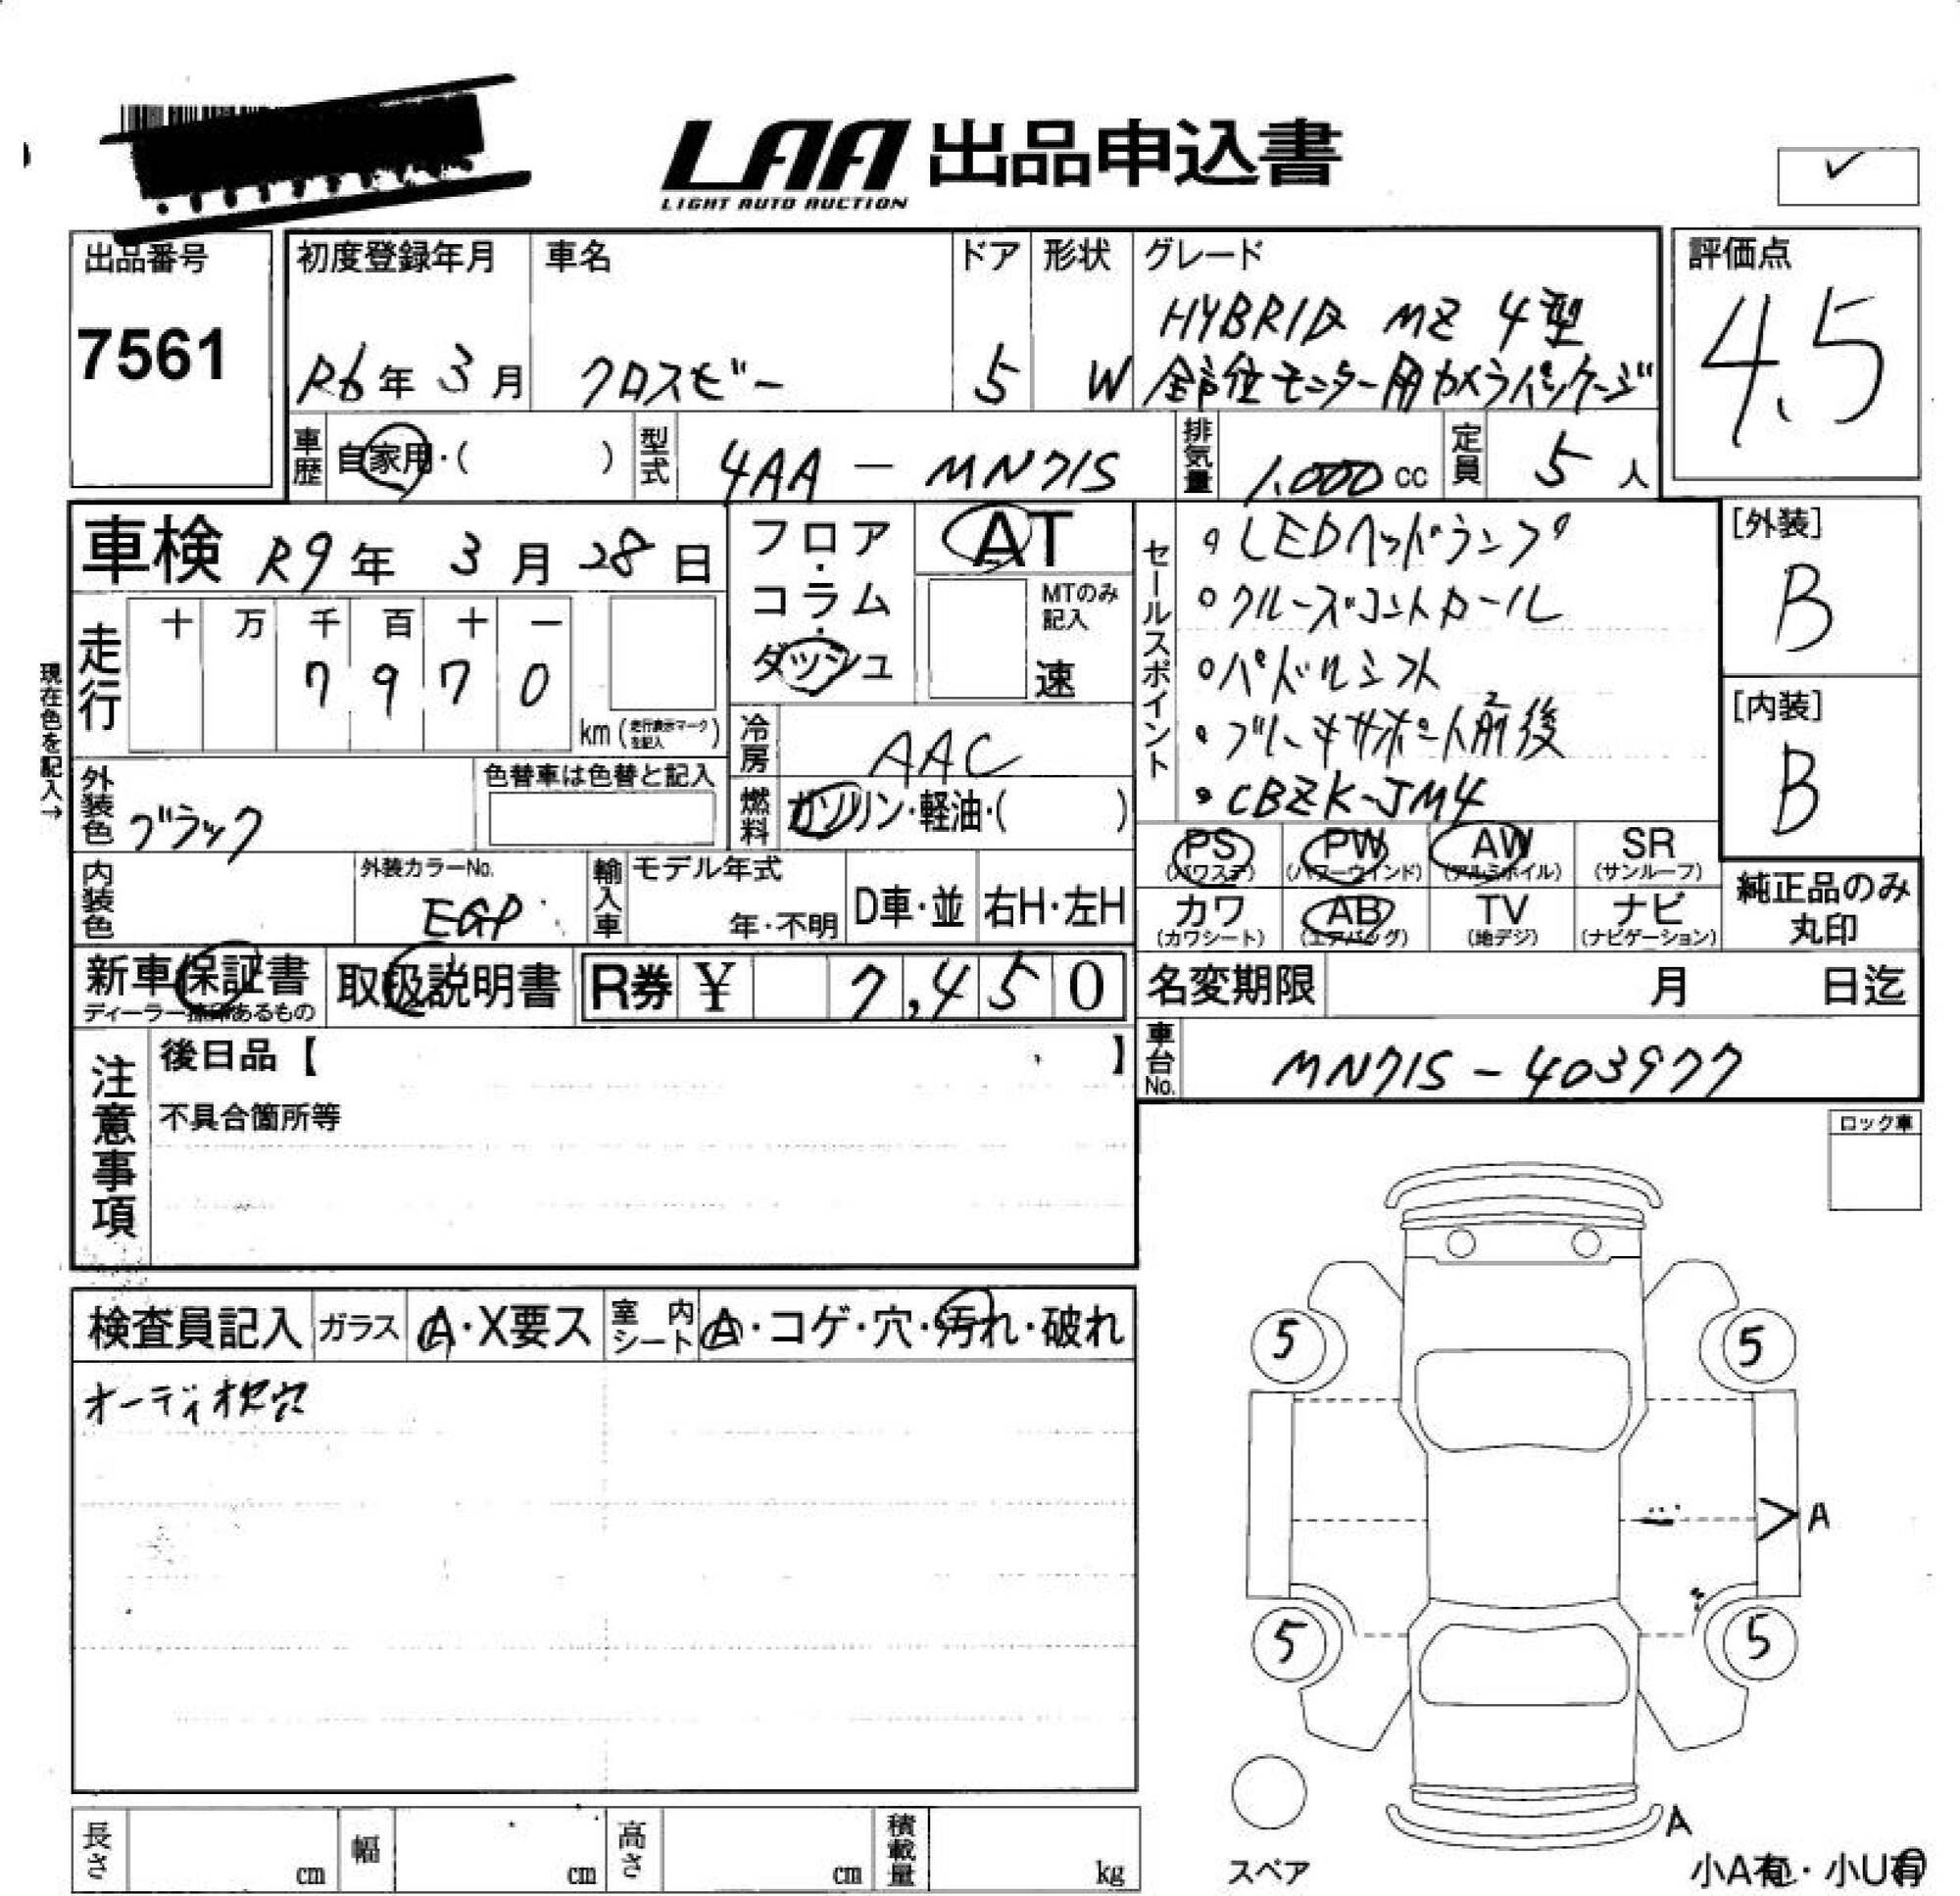 LAA 出品申込書
LIGHT AUTO AUCTION
出品番号
7561
初度登録年月
R6年 3月
車名
クロスビー
ドア
5
形状
W
グレード
HYBRID MZ 4型
全方位モニター用カメラパッケージ
評価点
4.5
車歴 自家用・( )
型式 4AA - MN71S
排気量 1.000 cc
定員 5 人
車検 R9年 3月 28日
フロア・コラム・ダッシュ
AT
MTのみ記入
速
走行
十 万 千 百 十 一
7 9 7 0
km (走行表示マークを記入)
現在色を記入→
冷房 AAC
燃料 ガソリン・軽油・( )
セールスポイント
・LEDヘッドランプ
・クルーズコントロール
・パドルシフト
・ブレーキサポート前後
・CBZK-JM4
[外装]
B
[内装]
B
外装色 ブラック
色替車は色替と記入
内装色
外装カラーNo.
EGP
輸入車
モデル年式
年・不明
D車・並
右H・左H
PS (パワステ)
PW (パワーウインド)
AW (アルミホイル)
SR (サンルーフ)
カワ (カワシート)
AB (エアバッグ)
TV (地デジ)
ナビ (ナビゲーション)
純正品のみ
丸印
新車保証書
ディーラー捺印あるもの
取扱説明書
R券 ¥ 7,450
名変期限 月 日迄
車台No. MN71S - 403977
注意事項
後日品【 】
不具合箇所等
ロック車
検査員記入
ガラス A・X要ス
室内シート A・コゲ・穴・汚れ・破れ
オーディオ枕穴
5 5
A
5 5
A
スペア
小A有・小U有
長さ cm
幅 cm
高さ cm
積載量 kg